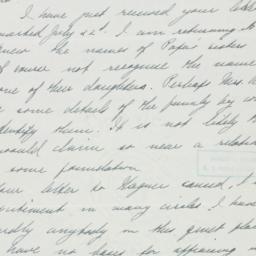 I have just received your lett
marked July 22d. I am returning it
knew the names of Papa's sisters
of course not recognize the name
one of their daughters. Perhaps Mrs.
some details of the family by wh
identify them. It is not likely th
would claim so near a relatio
some foundation
Your letter to caused,
in many circles. I have
hardly anybody in this quiet pla
have no basis for